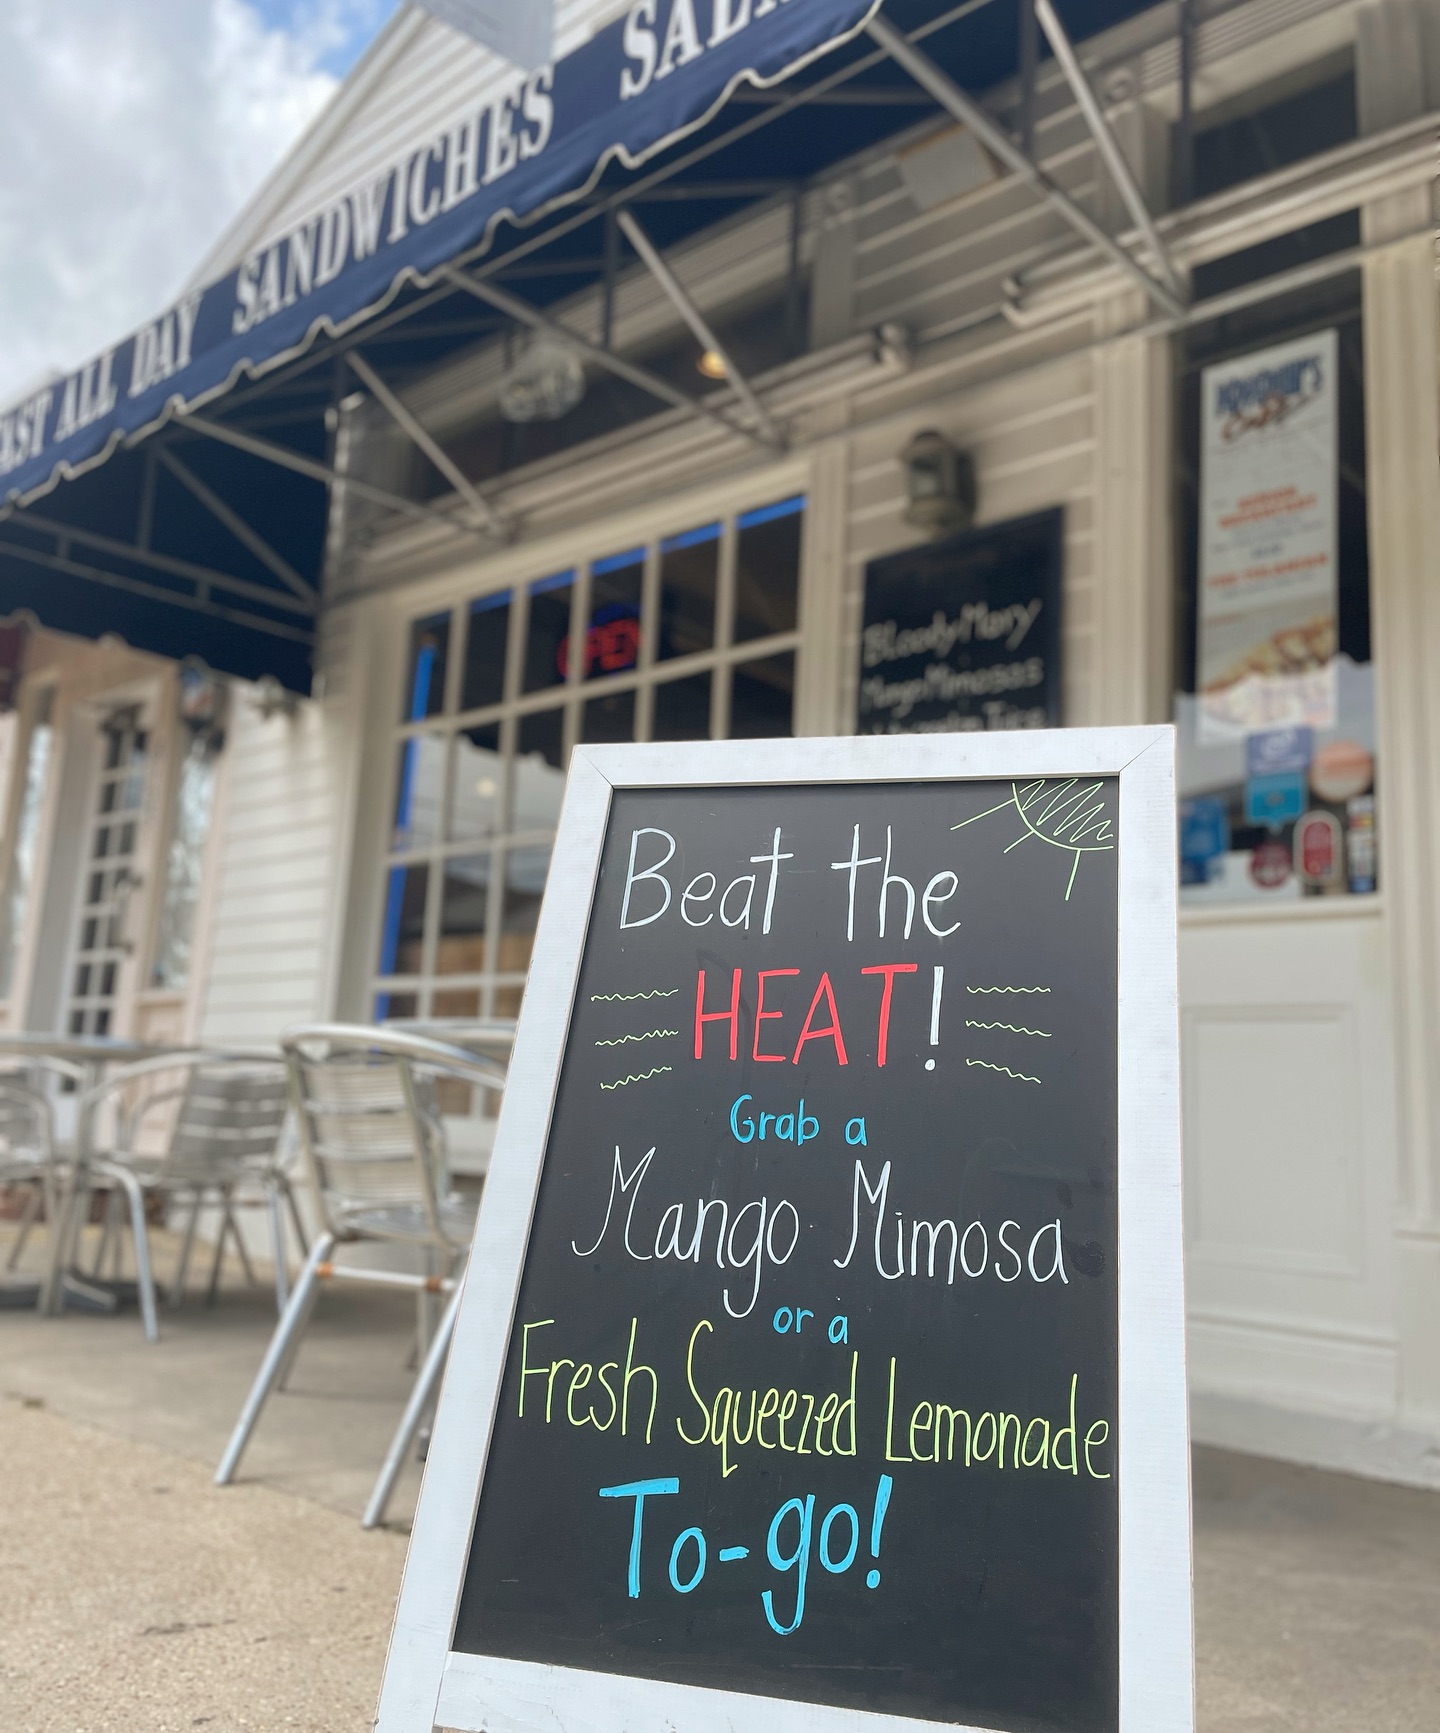 AST ALL DAY SANDWICHES SAL
OPEN
Bloody Mary
Mango Mimosas
Cafe
Beat the
HEAT!
Grab a
Mango Mimosa
or a
Fresh Squeezed Lemonade
To-go!